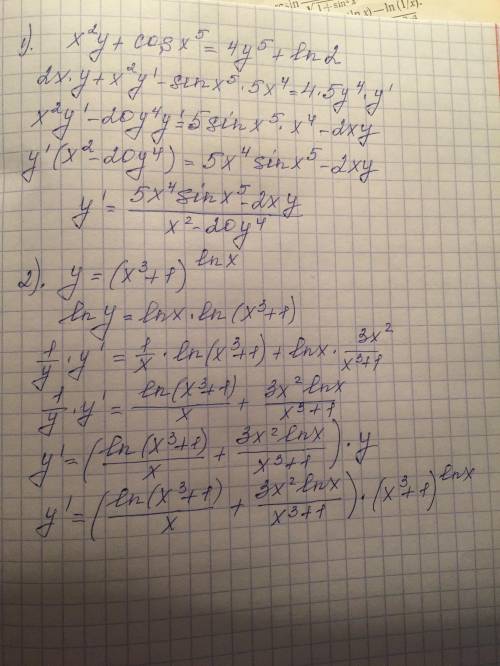 ln x) — ln (1/x).
1). x²y + cos x⁵ = 4y⁵ + ln 2
2x·y + x²y' - sin x⁵·5x⁴ = 4·5y⁴·y'
x²y' - 20y⁴y' = 5 sin x⁵·x⁴ - 2xy
y'(x² - 20y⁴) = 5x⁴ sin x⁵ - 2xy
y' = (5x⁴ sin x⁵ - 2xy)/(x² - 20y⁴)
2). y = (x³+1)^(ln x)
ln y = ln x · ln (x³+1)
1/y · y' = 1/x · ln (x³+1) + ln x · 3x²/(x³+1)
1/y · y' = ln (x³+1)/x + 3x² ln x/(x³+1)
y' = (ln (x³+1)/x + 3x² ln x/(x³+1)) · y
y' = (ln (x³+1)/x + 3x² ln x/(x³+1)) · (x³+1)^(ln x)